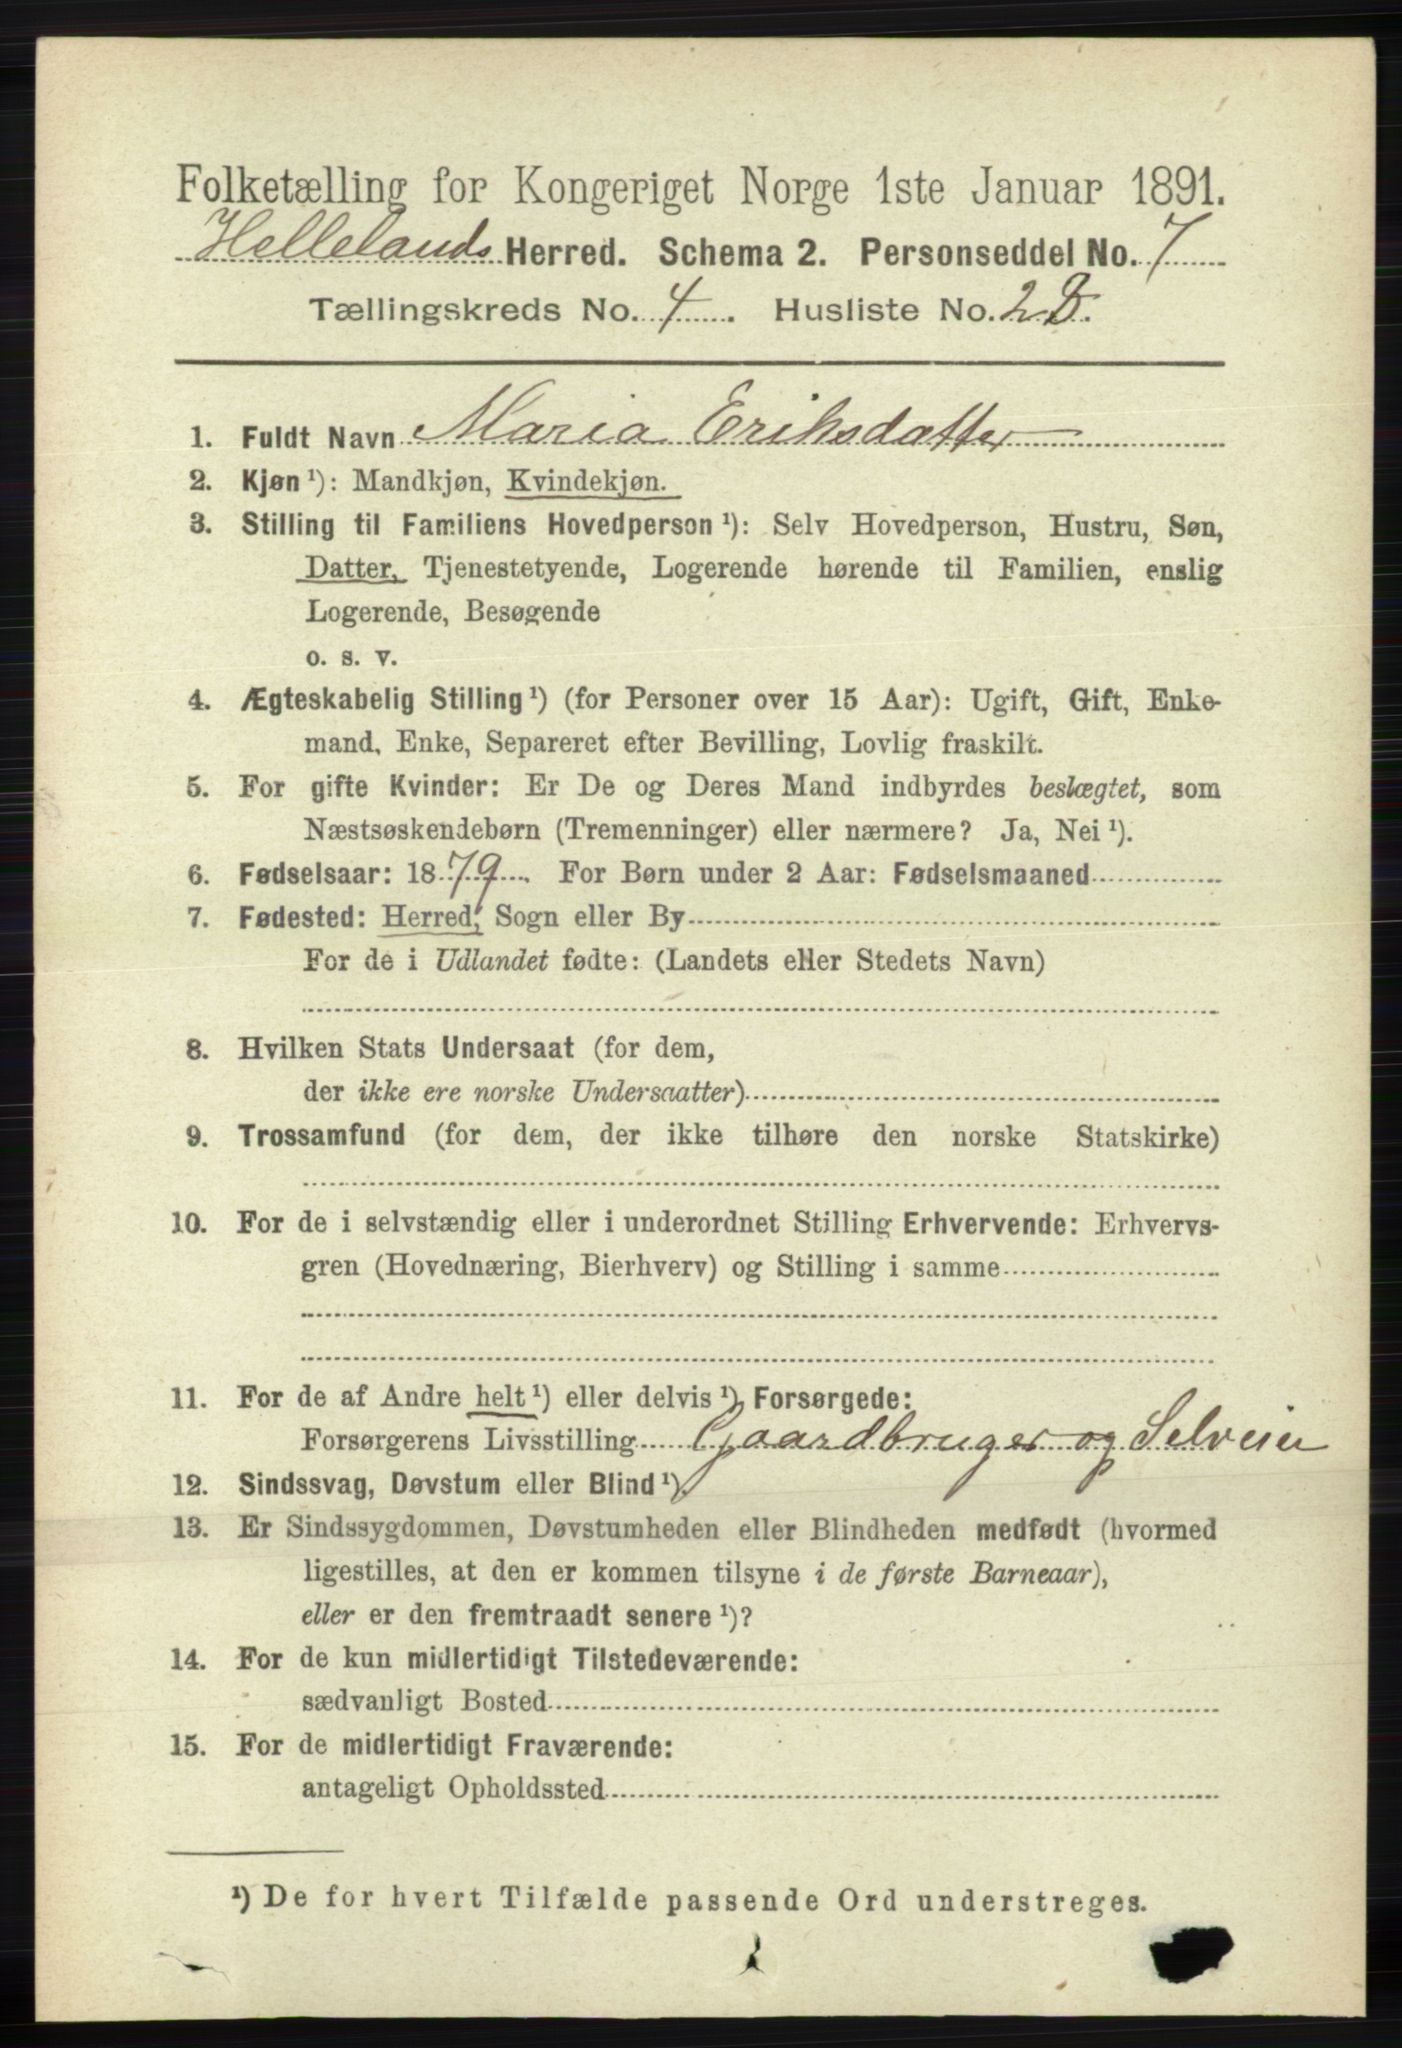 Folketælling for Kongeriget Norge 1ste Januar 1891.
Hellelands Herred. Schema 2. Personseddel No. 7
Tællingskreds No. 4. Husliste No. 2B.
1. Fuldt Navn Maria Eriksdatter
2. Kjøn ¹): Mandkjøn, Kvindekjøn.
3. Stilling til Familiens Hovedperson ¹): Selv Hovedperson, Hustru, Søn,
Datter, Tjenestetyende, Logerende hørende til Familien, enslig
Logerende, Besøgende
o. s. v.
4. Ægteskabelig Stilling ¹) (for Personer over 15 Aar): Ugift, Gift, Enke-
mand, Enke, Separeret efter Bevilling, Lovlig fraskilt.
5. For gifte Kvinder: Er De og Deres Mand indbyrdes beslægtet, som
Næstsøskendebørn (Tremenninger) eller nærmere? Ja, Nei ¹).
6. Fødselsaar: 1879. For Børn under 2 Aar: Fødselsmaaned
7. Fødested: Herred, Sogn eller By
For de i Udlandet fødte: (Landets eller Stedets Navn)
8. Hvilken Stats Undersaat (for dem,
der ikke ere norske Undersaatter)
9. Trossamfund (for dem, der ikke tilhøre den norske Statskirke)
10. For de i selvstændig eller i underordnet Stilling Erhvervende: Erhvervs-
gren (Hovednæring, Bierhverv) og Stilling i samme
11. For de af Andre helt ¹) eller delvis ¹) Forsørgede:
Forsørgerens Livsstilling Gaardbruger og Selveier
12. Sindssvag, Døvstum eller Blind ¹).
13. Er Sindssygdommen, Døvstumheden eller Blindheden medfødt (hvormed
ligestilles, at den er kommen tilsyne i de første Barneaar),
eller er den fremtraadt senere ¹)?
14. For de kun midlertidigt Tilstedeværende:
sædvanligt Bosted
15. For de midlertidigt Fraværende:
antageligt Opholdssted
¹) De for hvert Tilfælde passende Ord understreges.